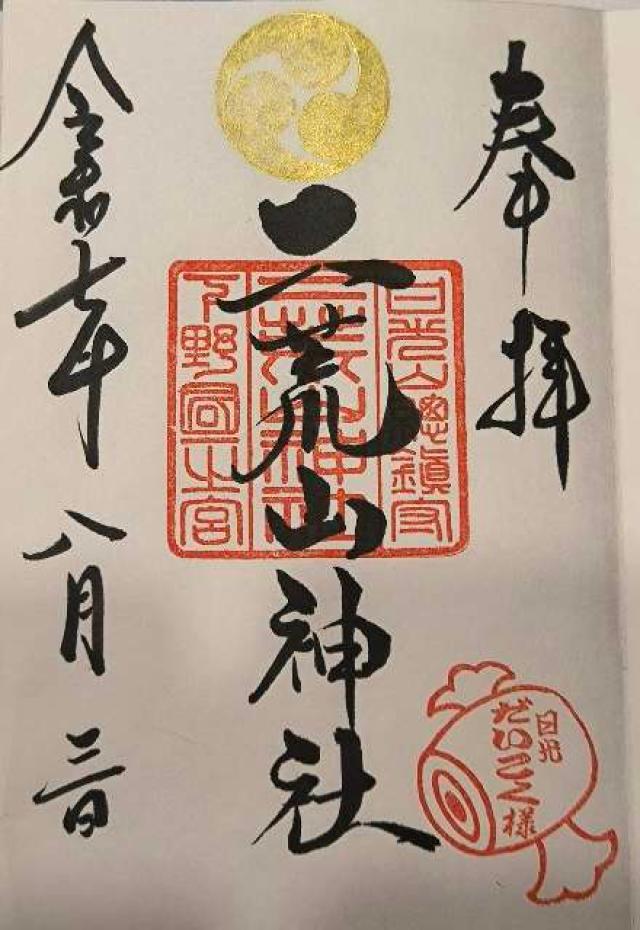 奉拝
二荒山神社
日光山總鎮守
二荒山神社
下野國一宮
令和七年八月三日
日光
だいこく様